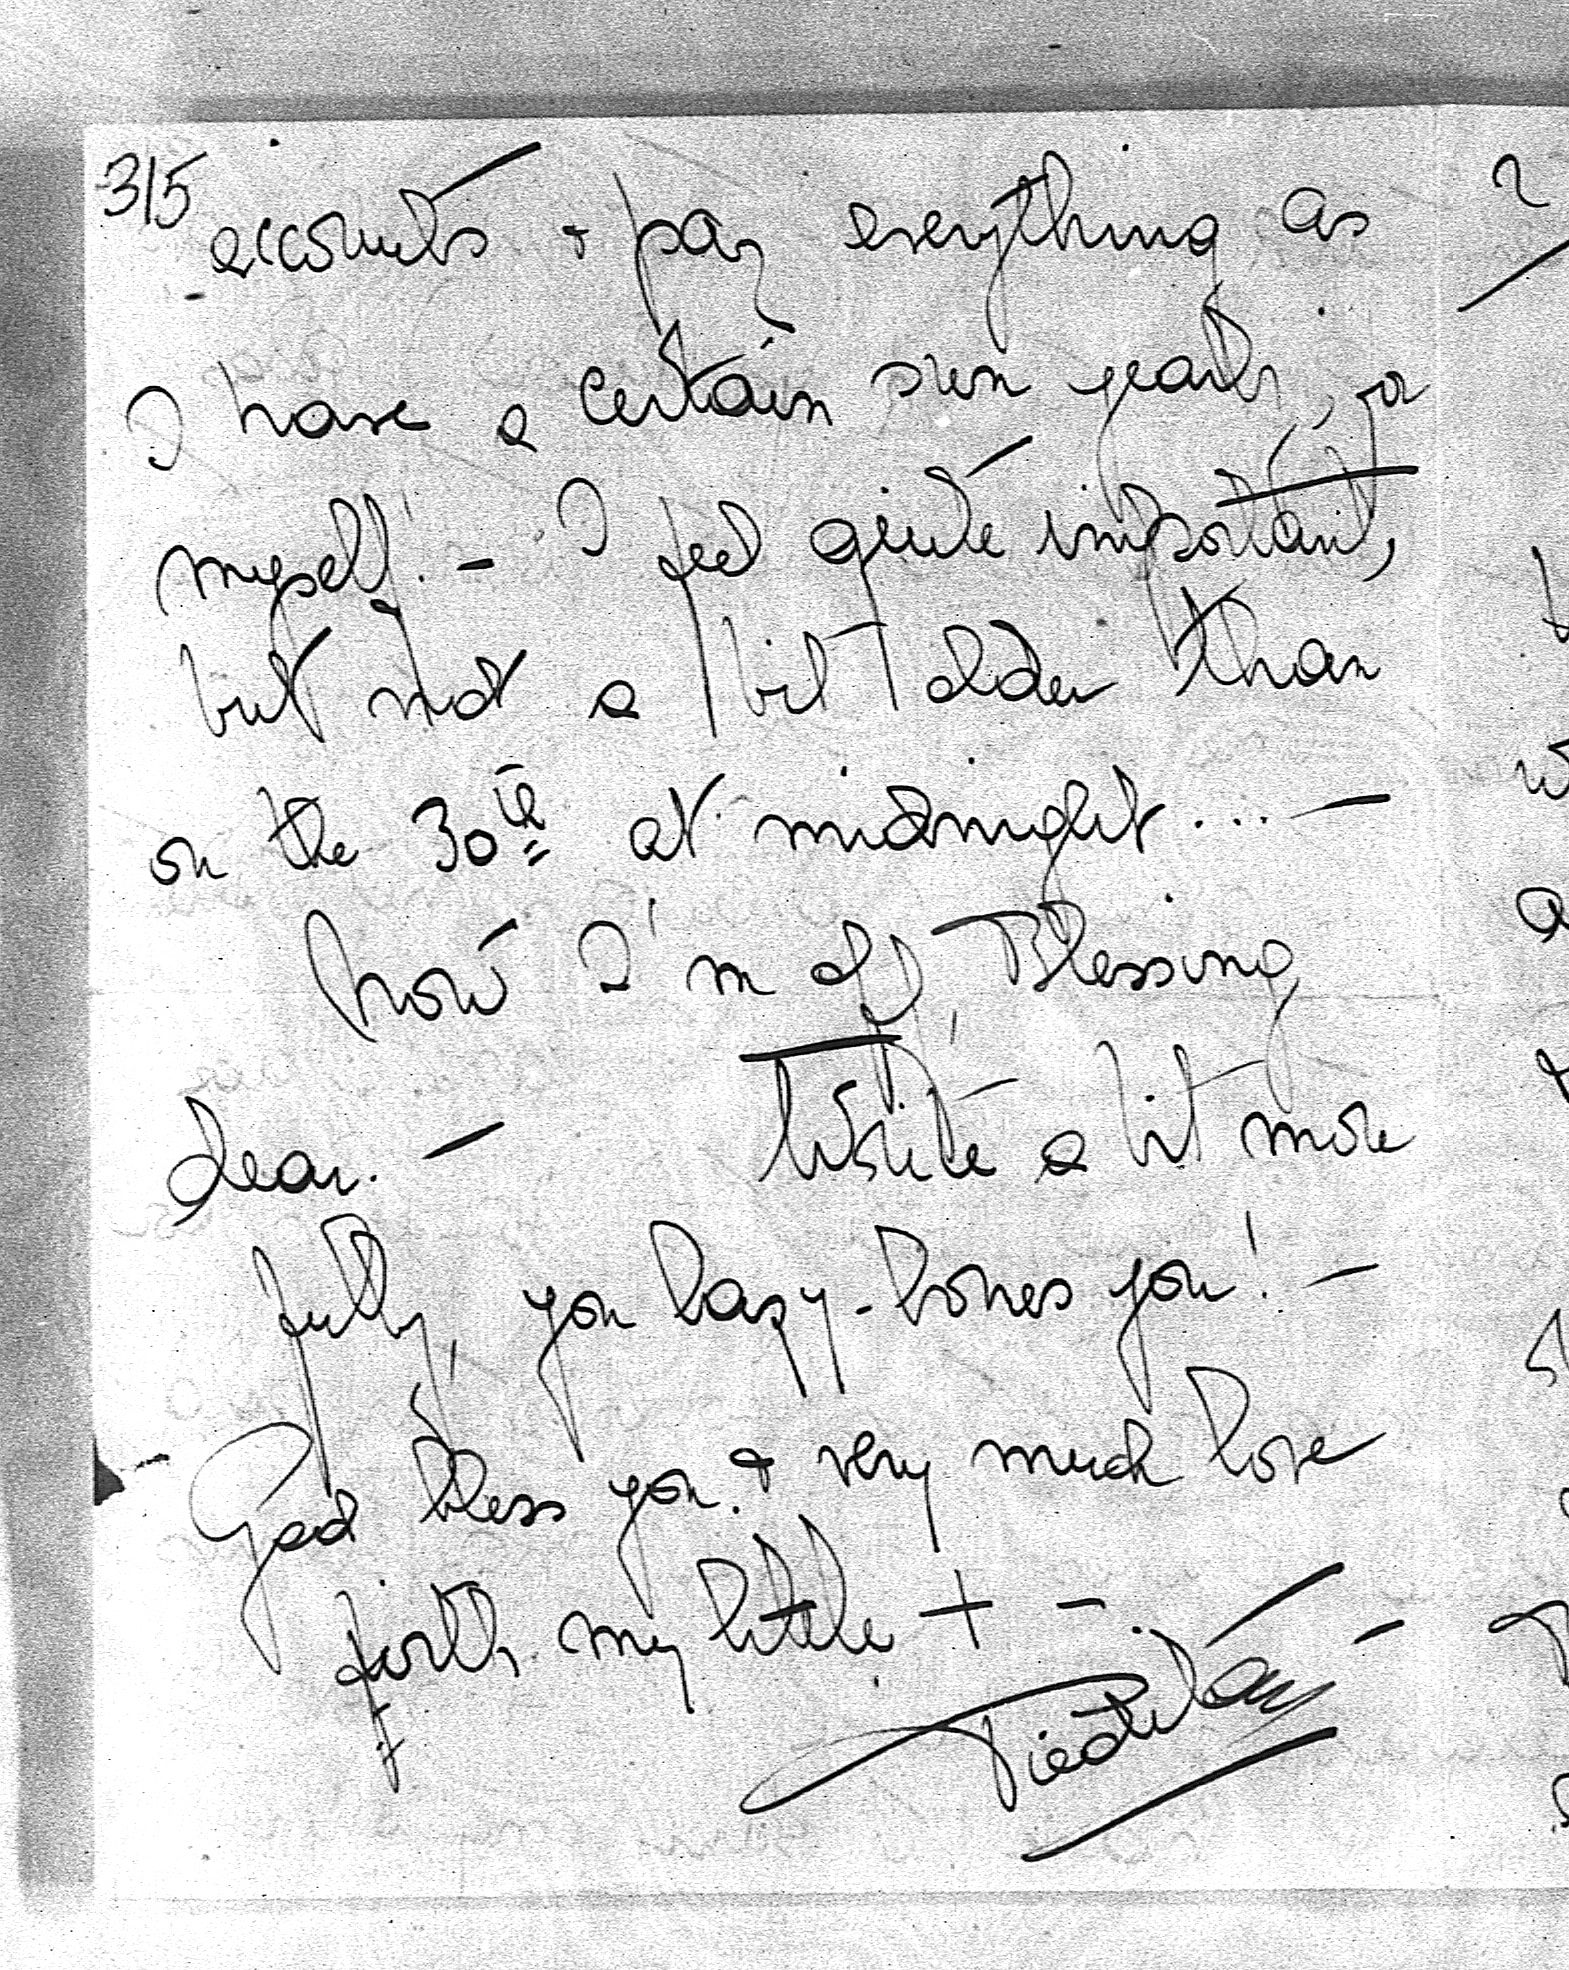 315
accounts + pay everything as
I have a certain sum yearly, for
myself! - I feel quite important,
but not a bit older than
on the 30th at midnight... -
Now I'm off, Blessing
dear. - Write a bit more
fully, you lazy-bones you! -
God bless you. + very much love
from my little + -